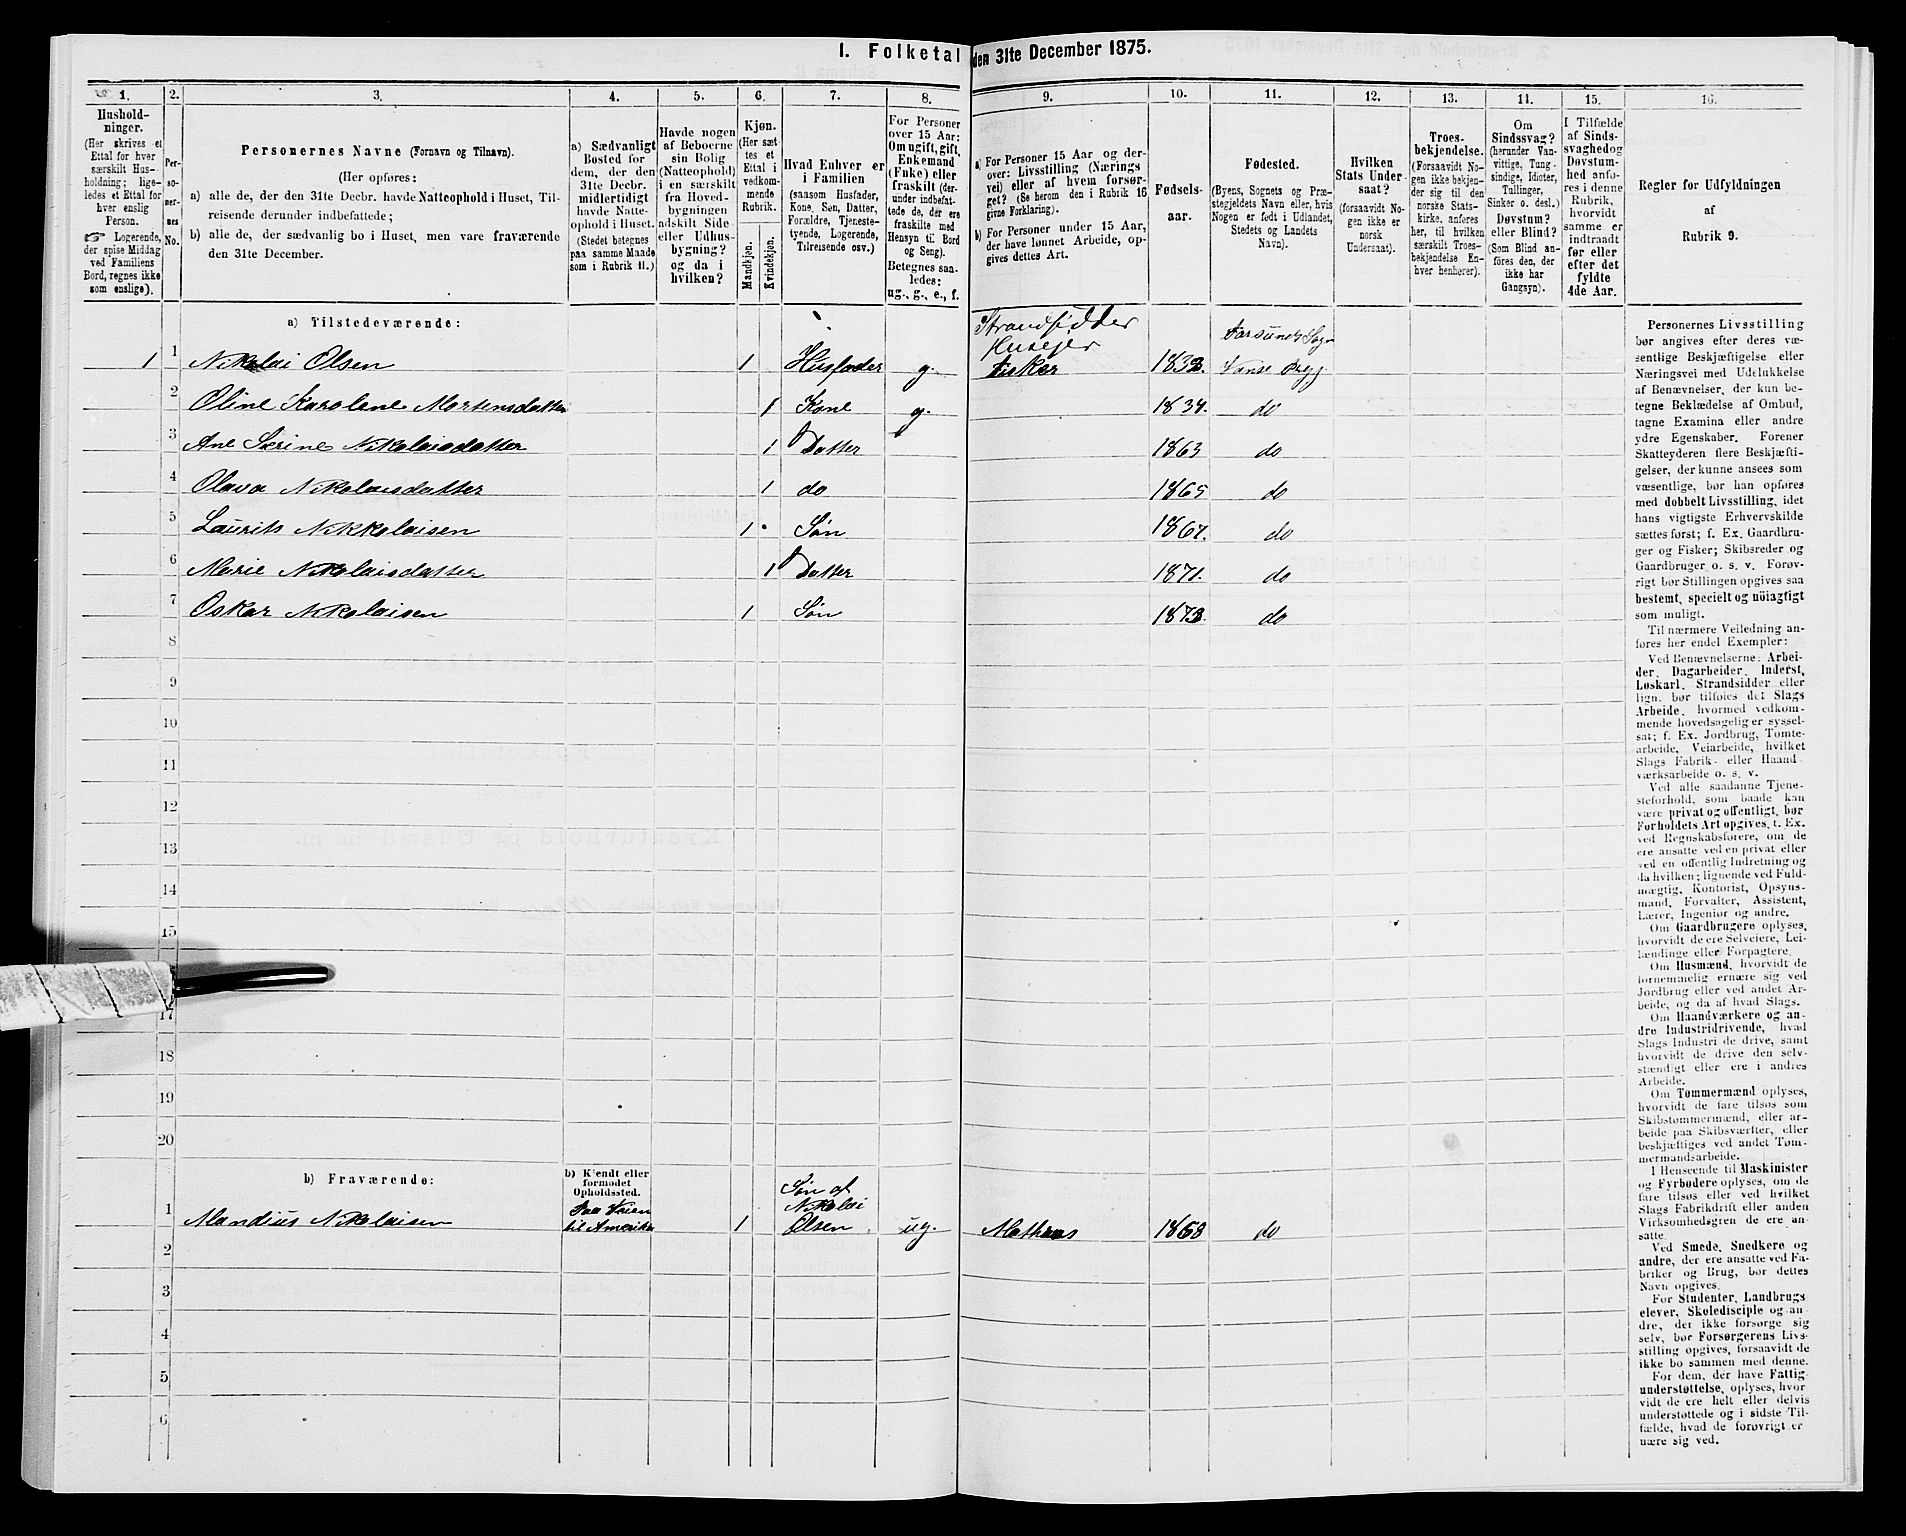 I. Folketal den 31te December 1875.
1. 2. 3. 4. 5. 6. 7. 8. 9. 10. 11. 12. 13. 14. 15. 16.
Hushold-
ninger.
(Her skrives et
Ettal for hver
særskilt Hus-
holdning; lige-
ledes et Ettal for
hver enslig
Person.
☞ Logerende,
der spise Middag
ved Familiens
Bord, regnes ikke
som enslige).
Per-
so-
ner-
nes
No.
Personernes Navne (Fornavn og Tilnavn).
(Her opføres:
a) alle de, der den 31te Decbr. havde Natteophold i Huset, Til-
reisende derunder indbefattede;
b) alle de, der sædvanlig bo i Huset, men vare fraværende
den 31te December.
a) Sædvanligt
Bosted for
dem, der den
31te Decbr.
midlertidigt
havde Natte-
ophold i Huset.
(Stedet betegnes
paa samme Maade
som i Rubrik 11.)
Havde nogen
af Beboerne
sin Bolig
(Natteophold)
i en særskilt
fra Hoved-
bygningen
adskilt Side-
eller Udhus-
bygning?
og da i
hvilken?
Kjøn.
(Her sæt-
tes et
Ettal i
vedkom-
mende
Rubrik.
Mandkjøn.
Kvindekjøn.
Hvad Enhver er
i Familien
(saasom Husfader,
Kone, Søn, Datter,
Forældre, Tjeneste-
tyende, Logerende,
Tilreisende osv.)
For Personer
over 15 Aar:
Om ugift, gift,
Enkemand
(Enke) eller
fraskilt (der-
under indbefat-
tede de, der ere
fraskilte med
Hensyn til Bord
og Seng).
Betegnes saa-
ledes:
ug., g., e., f.
a) For Personer 15 Aar og der-
over: Livsstilling (Nærings-
vei) eller af hvem forsør-
get? (Se herom den i Rubrik 16
givne Forklaring).
b) For Personer under 15 Aar,
der have lønnet Arbeide, op-
gives dettes Art.
Fødsels-
aar.
Fødested.
(Byens, Sognets og Præ-
stegjeldets Navn eller, hvis
Nogen er født i Udlandet,
Stedets og Landets
Navn).
Hvilken
Stats Under-
saat?
(forsaavidt No-
gen ikke er
norsk
Undersaat).
Troes-
bekjendelse.
(Forsaavidt No-
gen ikke bekjen-
der sig til den
norske Stats-
kirke, anføres
her, til hvilken
særskilt Troes-
bekjendelse En-
hver henhører).
Om
Sindssvag?
(herunder Van-
vittige, Tung-
sindige, Idioter,
Tullinger,
Sinker o. desl.)
Døvstum?
eller Blind?
(Som Blind an-
føres den, der
ikke har
Gangsyn).
I Tilfælde
af Sinds-
svaghed og
Døvstum-
hed anfø-
res i denne
Rubrik,
hvorvidt
samme er
indtraadt
før eller
efter det
fyldte
4de Aar.
Regler for Udfyldningen
af
Rubrik 9.
a) Tilstedeværende:
Strandsidder
Huseier Farsunds Sogn
1 1 Nikolai Olsen 1 Husfader g. Fisker 1832. Vanse Prgj.
2 Oline Karolene Mortensdatter 1 Kone g. 1834. do
3 Ane Serine Nikolaisdatter 1 Datter 1863 do
4 Olava Nikolaisdatter 1 do 1865 do
5 Laurits Nikkolaisen 1 Søn 1867. do
6 Marie Nikolaisdatter 1 Datter 1871. do
7 Oskar Nikolaisen 1 Søn 1873. do
8
9
10
11
12
13
14
15
17
18
19
20
b) Fraværende:
b) Kjendt eller
formodet
Opholdssted.
Søn af
Paa Veien Nikolai
1 Mandius Nikolaisen til Amerika 1 Olsen ug. Mathros 1858 do
2
3
4
5
6
Personernes Livsstilling
bør angives efter deres væ-
sentlige Beskjæftigelse eller
Næringsvei med Udelukkelse
af Benævnelser, der kun be-
tegne Beklædelse af Ombud,
tagne Examina eller andre
ydre Egenskaber. Forener
Skatteyderen flere Beskjæfti-
gelser, der kunne ansees som
væsentlige, bør han opføres
med dobbelt Livsstilling, idet
hans vigtigste Erhvervskilde
sættes først; f. Ex. Gaardbru-
ger og Fisker; Skibsreder og
Gaardbruger o. s. v. Forøv-
rigt bør Stillingen opgives saa
bestemt, specielt og nöiagtigt
som muligt.
Til nærmere Veiledning an-
føres her endel Exempler:
Ved Benævnelserne: Arbei-
der, Dagarbeider, Inderst,
Løskarl, Strandsidder eller
lign. bør tilføies det Slags
Arbeide, hvormed vedkom-
mende hovedsagelig er syssel-
sat; f. Ex. Jordbrug, Tomte-
arbeide, Veiarbeide, hvilket
Slags Fabrik- eller Haand-
værksarbeide o. s. v.
Ved alle saadanne Tjene-
steforhold, som baade kan
være privat og offentligt, bør
Forholdets Art opgives, t. Ex.
ved Regnskabsførere, om de
ere ansatte ved en privat eller
ved en offentlig Indretning og
da hvilken; lignende ved Fuld-
mægtig, Kontorist, Opsyns-
mand, Forvalter, Assistent,
Lærer, Ingeniør og andre.
Om Gaardbrugere oplyses,
hvorvidt de ere Selveiere, Lei-
lændinge eller Forpagtere.
Om Husmænd, hvorvidt de
fornemmelig ernære sig ved
Jordbrug eller ved andet Ar-
beide, og da af hvad Slags.
Om Haandværkere og an-
dre Industridrivende, hvad
Slags Industri de drive, samt
hvorvidt de drive den selv-
stændigt eller ere i andres
Arbeide.
Om Tømmermænd oplyses,
hvorvidt de fare tilsøs som
Skibstømmermænd, eller ar-
beide paa Skibsværfter, eller
beskjæftiges ved andet Tøm-
mermandsarbeide.
I Henseende til Maskinister
og Fyrbødere oplyses, om de
fare tilsøs eller ved hvilket
Slags Fabrikdrift eller anden
Virksomhedsgren de ere an-
satte.
Ved Smede, Snedkere og
andre, der ere ansatte ved Fa-
briker og Brug, bør dettes
Navn opgives.
For Studenter, Landbrugs-
elever, Skoledisciple og an-
dre, der ikke forsørge sig
selv, bør Forsørgerens Livs-
stilling opgives, forsaavidt de
ikke bo sammen med denne.
For dem, der have Fattig-
understøttelse, oplyses, hvor-
vidt de ere helt eller delvis
understøttede og i sidste Til-
fælde, hvad de forøvrigt er-
nære sig ved.